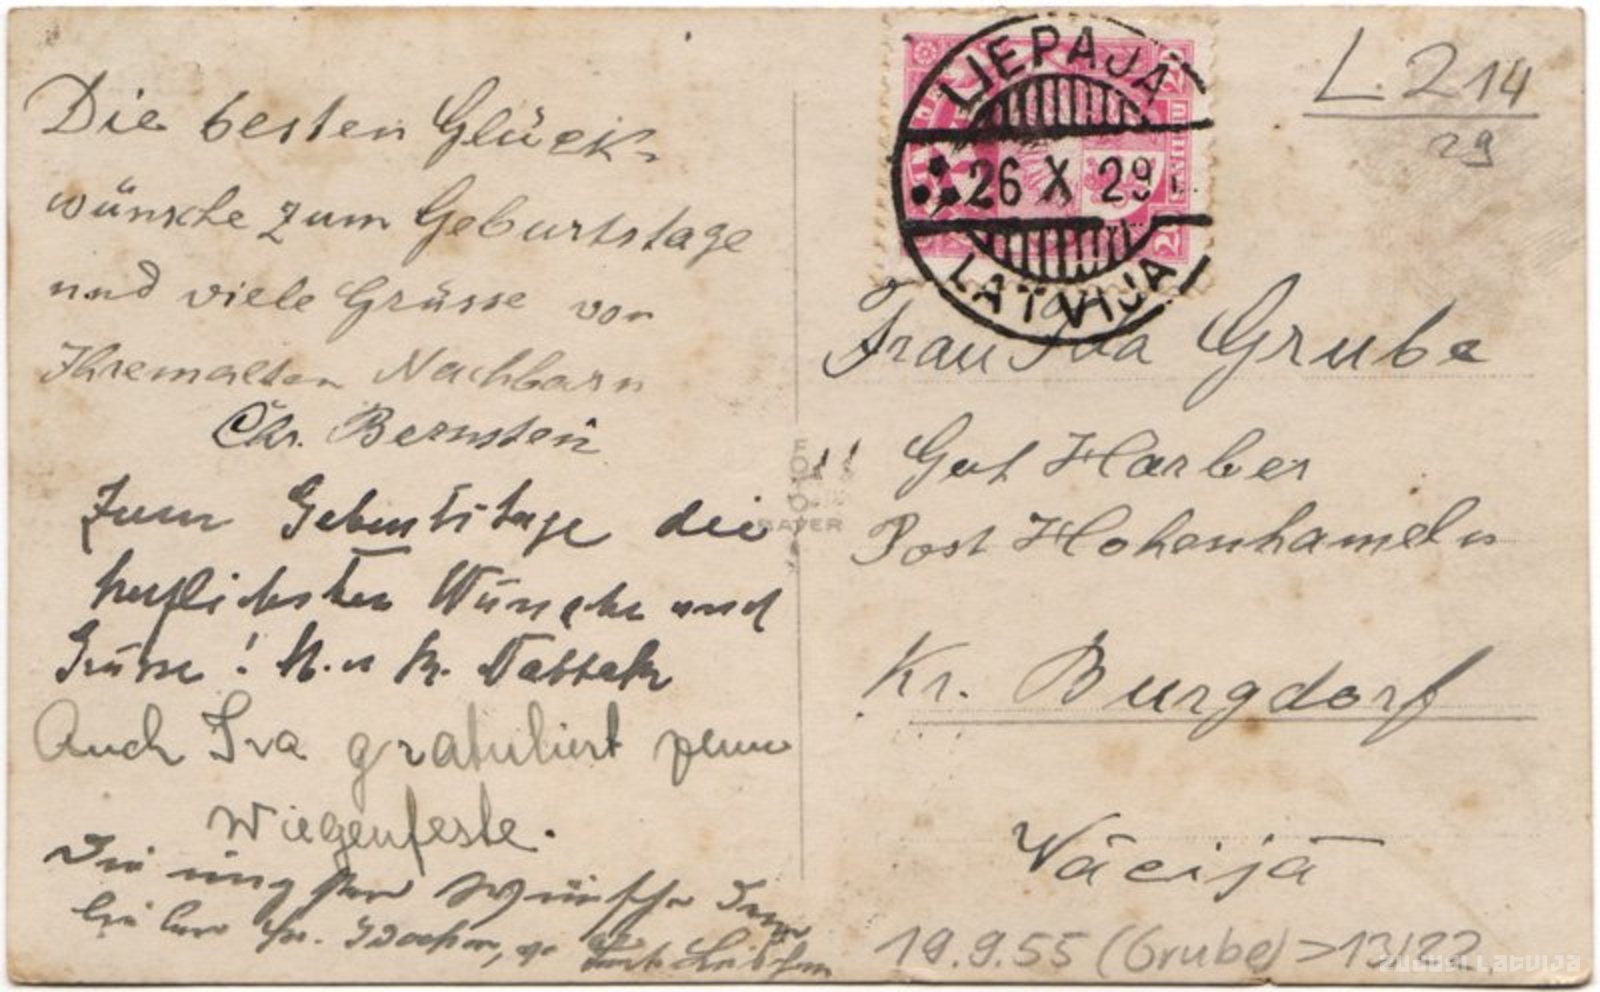 Die besten Glück-
wünsche zum Geburtstage
und viele Grüsse von
Ihrem alten Nachbarn
Chr. Bernstein
Zum Geburtstage die
herzlichsten Wünsche und
Grüsse!
Auch Iva gratuliert zum
Wiegenfeste.
LIEPAJA
26 X 29
LATVIJA
L. 214
29
Frau Ida Grube
Gut Harber
Post Hohenhameln
Kr. Burgdorf
Vācijā
FOTO
MAYER
19.9.55 (Grube) > 13/22
ZUDUSI LATVIJA